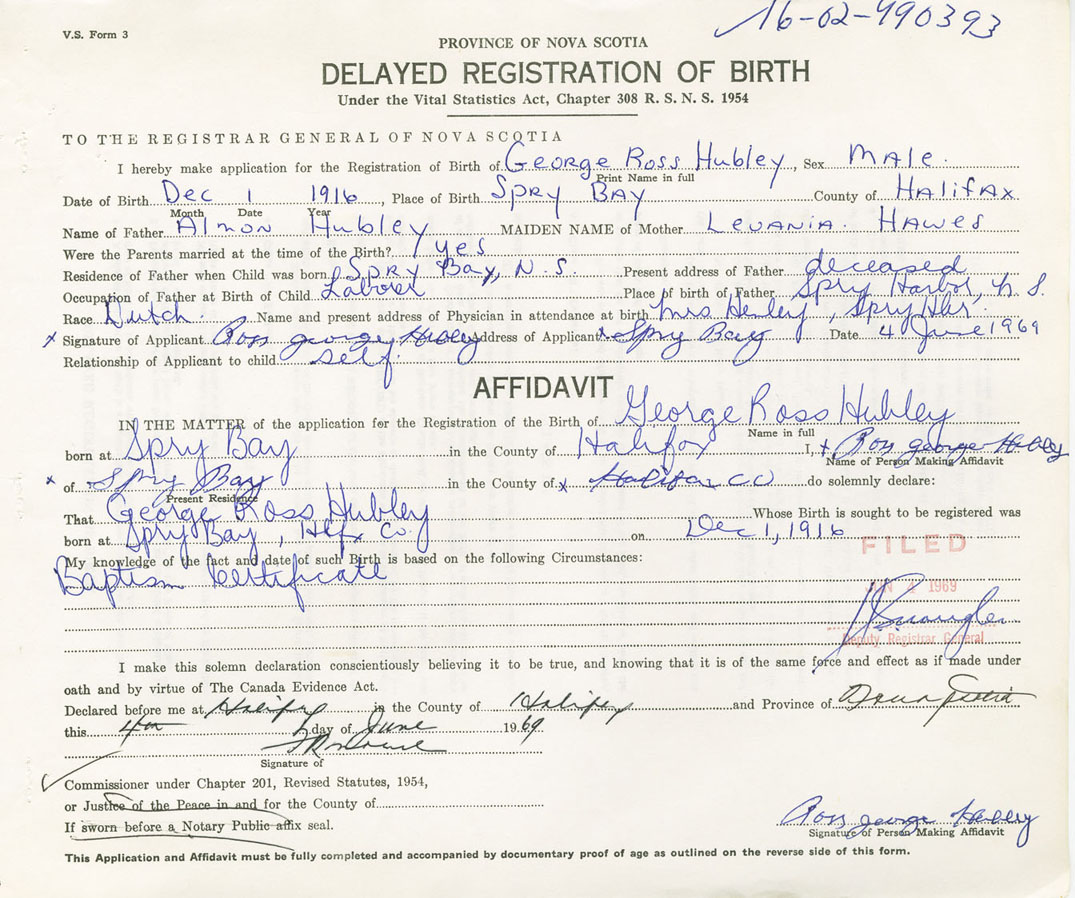 16-02-490393
V.S. Form 3
PROVINCE OF NOVA SCOTIA
DELAYED REGISTRATION OF BIRTH
Under the Vital Statistics Act, Chapter 308 R. S. N. S. 1954
TO THE REGISTRAR GENERAL OF NOVA SCOTIA
I hereby make application for the Registration of Birth of George Ross Hubley, Sex MALE.
Print Name in full
Date of Birth Dec 1 1916, Place of Birth SPRY BAY County of HALIFAX
Month Date Year
Name of Father Almon Hubley MAIDEN NAME of Mother LEVANIA HAWES
Were the Parents married at the time of the Birth? yes
Residence of Father when Child was born SPRY Bay, N.S. Present address of Father deceased
Occupation of Father at Birth of Child Laborer Place of birth of Father Spry Harbor, N.S.
Race Dutch. Name and present address of Physician in attendance at birth Mrs Henley, Spry Hbr.
x Signature of Applicant Ross george Hubley Address of Applicant x Spry Bay Date 4 June 1969
Relationship of Applicant to child self.
AFFIDAVIT
IN THE MATTER of the application for the Registration of the Birth of George Ross Hubley
Name in full
born at Spry Bay in the County of Halifax I, x Ross george Hubley
Name of Person Making Affidavit
x of Spry Bay in the County of x Halifax CO do solemnly declare:
Present Residence
That George Ross Hubley Whose Birth is sought to be registered was
born at Spry Bay, Hfx Co. on Dec 1, 1916
FILED
My knowledge of the fact and date of such Birth is based on the following Circumstances:
Baptism Certificate
JUN 4 1969
Deputy Registrar General
I make this solemn declaration conscientiously believing it to be true, and knowing that it is of the same force and effect as if made under
oath and by virtue of The Canada Evidence Act.
Declared before me at Halifax in the County of Halifax and Province of Nova Scotia
this 4th day of June 1969
Signature of
Commissioner under Chapter 201, Revised Statutes, 1954,
or Justice of the Peace in and for the County of
If sworn before a Notary Public affix seal.
Ross george Hubley
Signature of Person Making Affidavit
This Application and Affidavit must be fully completed and accompanied by documentary proof of age as outlined on the reverse side of this form.